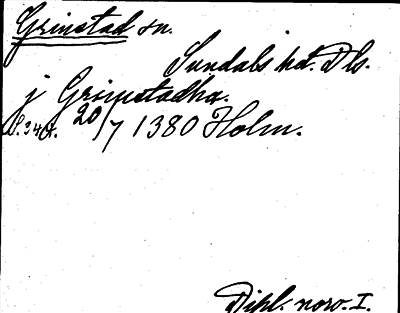 Grinstad sn.
Sundals hd. Dls.
j Grimstadha.
S. 348. 20/7 1380 Holm.
Dipl. norv. I.